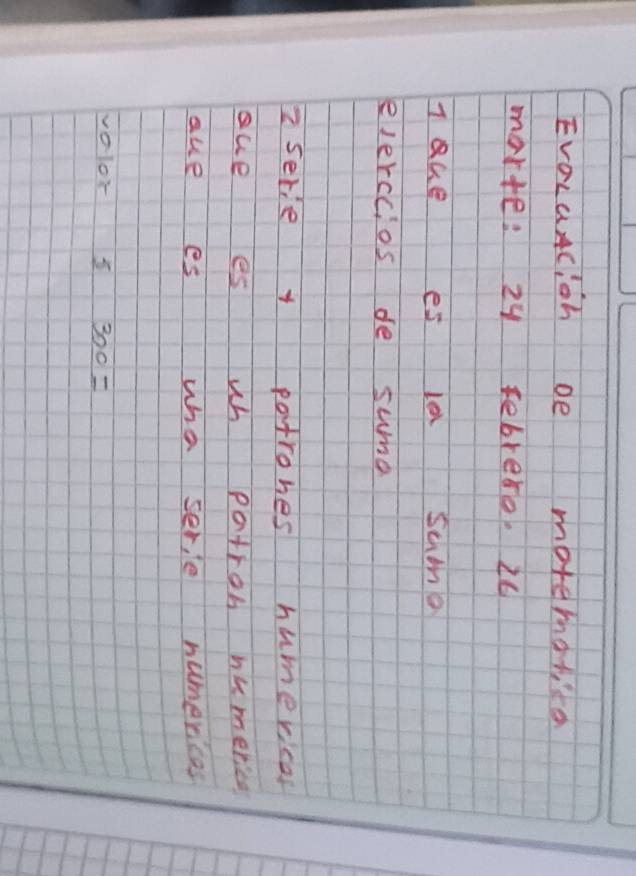 Evaluación De matematica
marte: 24 febrero. 26
1 que es la suma
ejerccios de suma
2 serie y patrones numericos
que es un patron numerico
que es una serie numericas
valor 5 300=